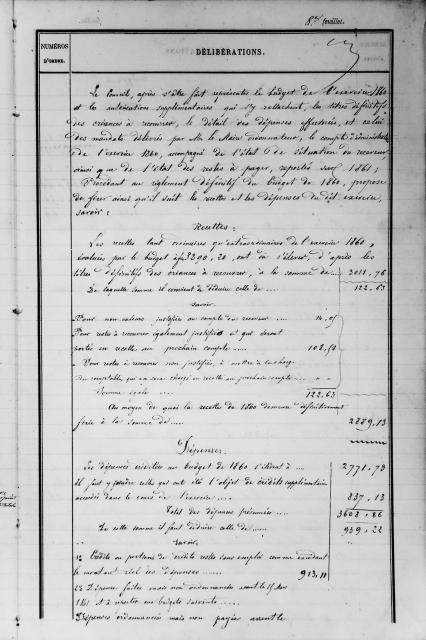 8e feuillet.
NUMÉROS
D'ORDRE.
DÉLIBÉRATIONS.
Le Conseil, après s'être fait représenter le budget de l'exercice 1860
et les autorisations supplémentaires qui s'y rattachent, les titres définitifs
des créances à recouvrer, le détail des dépenses effectuées, et celui
des mandats délivrés par Mr. le Maire ordonnateur, le compte d'administration
de l'exercice 1860, accompagné de l'état de situation du receveur
ainsi que de l'état des restes à payer, reportés sur 1861;
Procédant au règlement définitif du budget de 1860, propose
de fixer ainsi qu'il suit les recettes et les dépenses du dit exercice,
savoir:
Recettes:
Les recettes tant ordinaires qu'extraordinaires de l'exercice 1860,
évaluées par le budget à 20, ont dû s'élever, d'après les
titres définitifs des créances à recouvrer, à la somme de 3011,76
De laquelle somme il convient de déduire celle de .... 122,63
savoir,
Pour non valeurs justifiées au compte du receveur ...
Pour restes à recouvrer également justifiés et qui seront
portés en recette au prochain compte .... 108,58
Pour restes à recouvrer non justifiés, à mettre à la charge
du comptable, qui en sera chargé en recette au prochain compte ... "  "
Somme égale .... 122,63
Au moyen de quoi la recette de 1860 demeure définitivement
fixée à la somme de .... 2889,13
Dépenses.
Les dépenses créditées au budget de 1860 s'élèvent à .... 2771,73
il faut y joindre celles qui ont été l'objet de crédits supplémentaires
accordés dans le cours de l'exercice .... 837,13
Total des dépenses présumées ... 3608,86
De cette somme il faut déduire celle de .... 939,22
savoir,
1o Crédits ou portions de crédits restés sans emploi comme excédant
le montant réel des dépenses ...... 913,11
2o Dépenses faites mais non ordonnancées avant le 15 Mars
1861 et à reporter aux budgets suivants .....
Dépenses ordonnancées mais non payées avant le